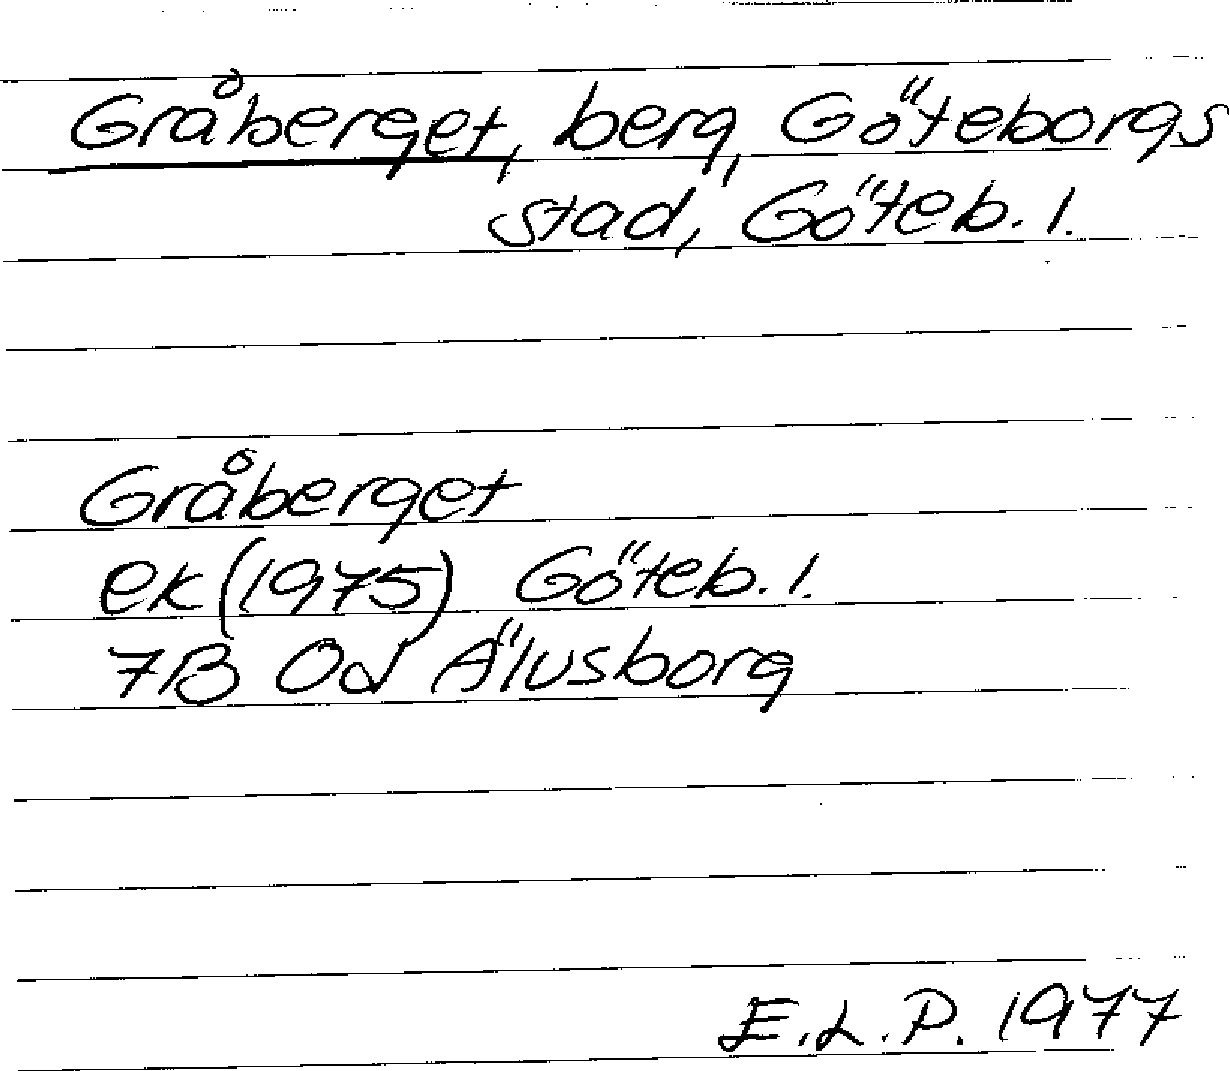 Gråberget, berg, Göteborgs
stad, Göteb. l.
Gråberget
ek (1975) Göteb. l.
7B Od Älvsborg
E.L.P. 1977